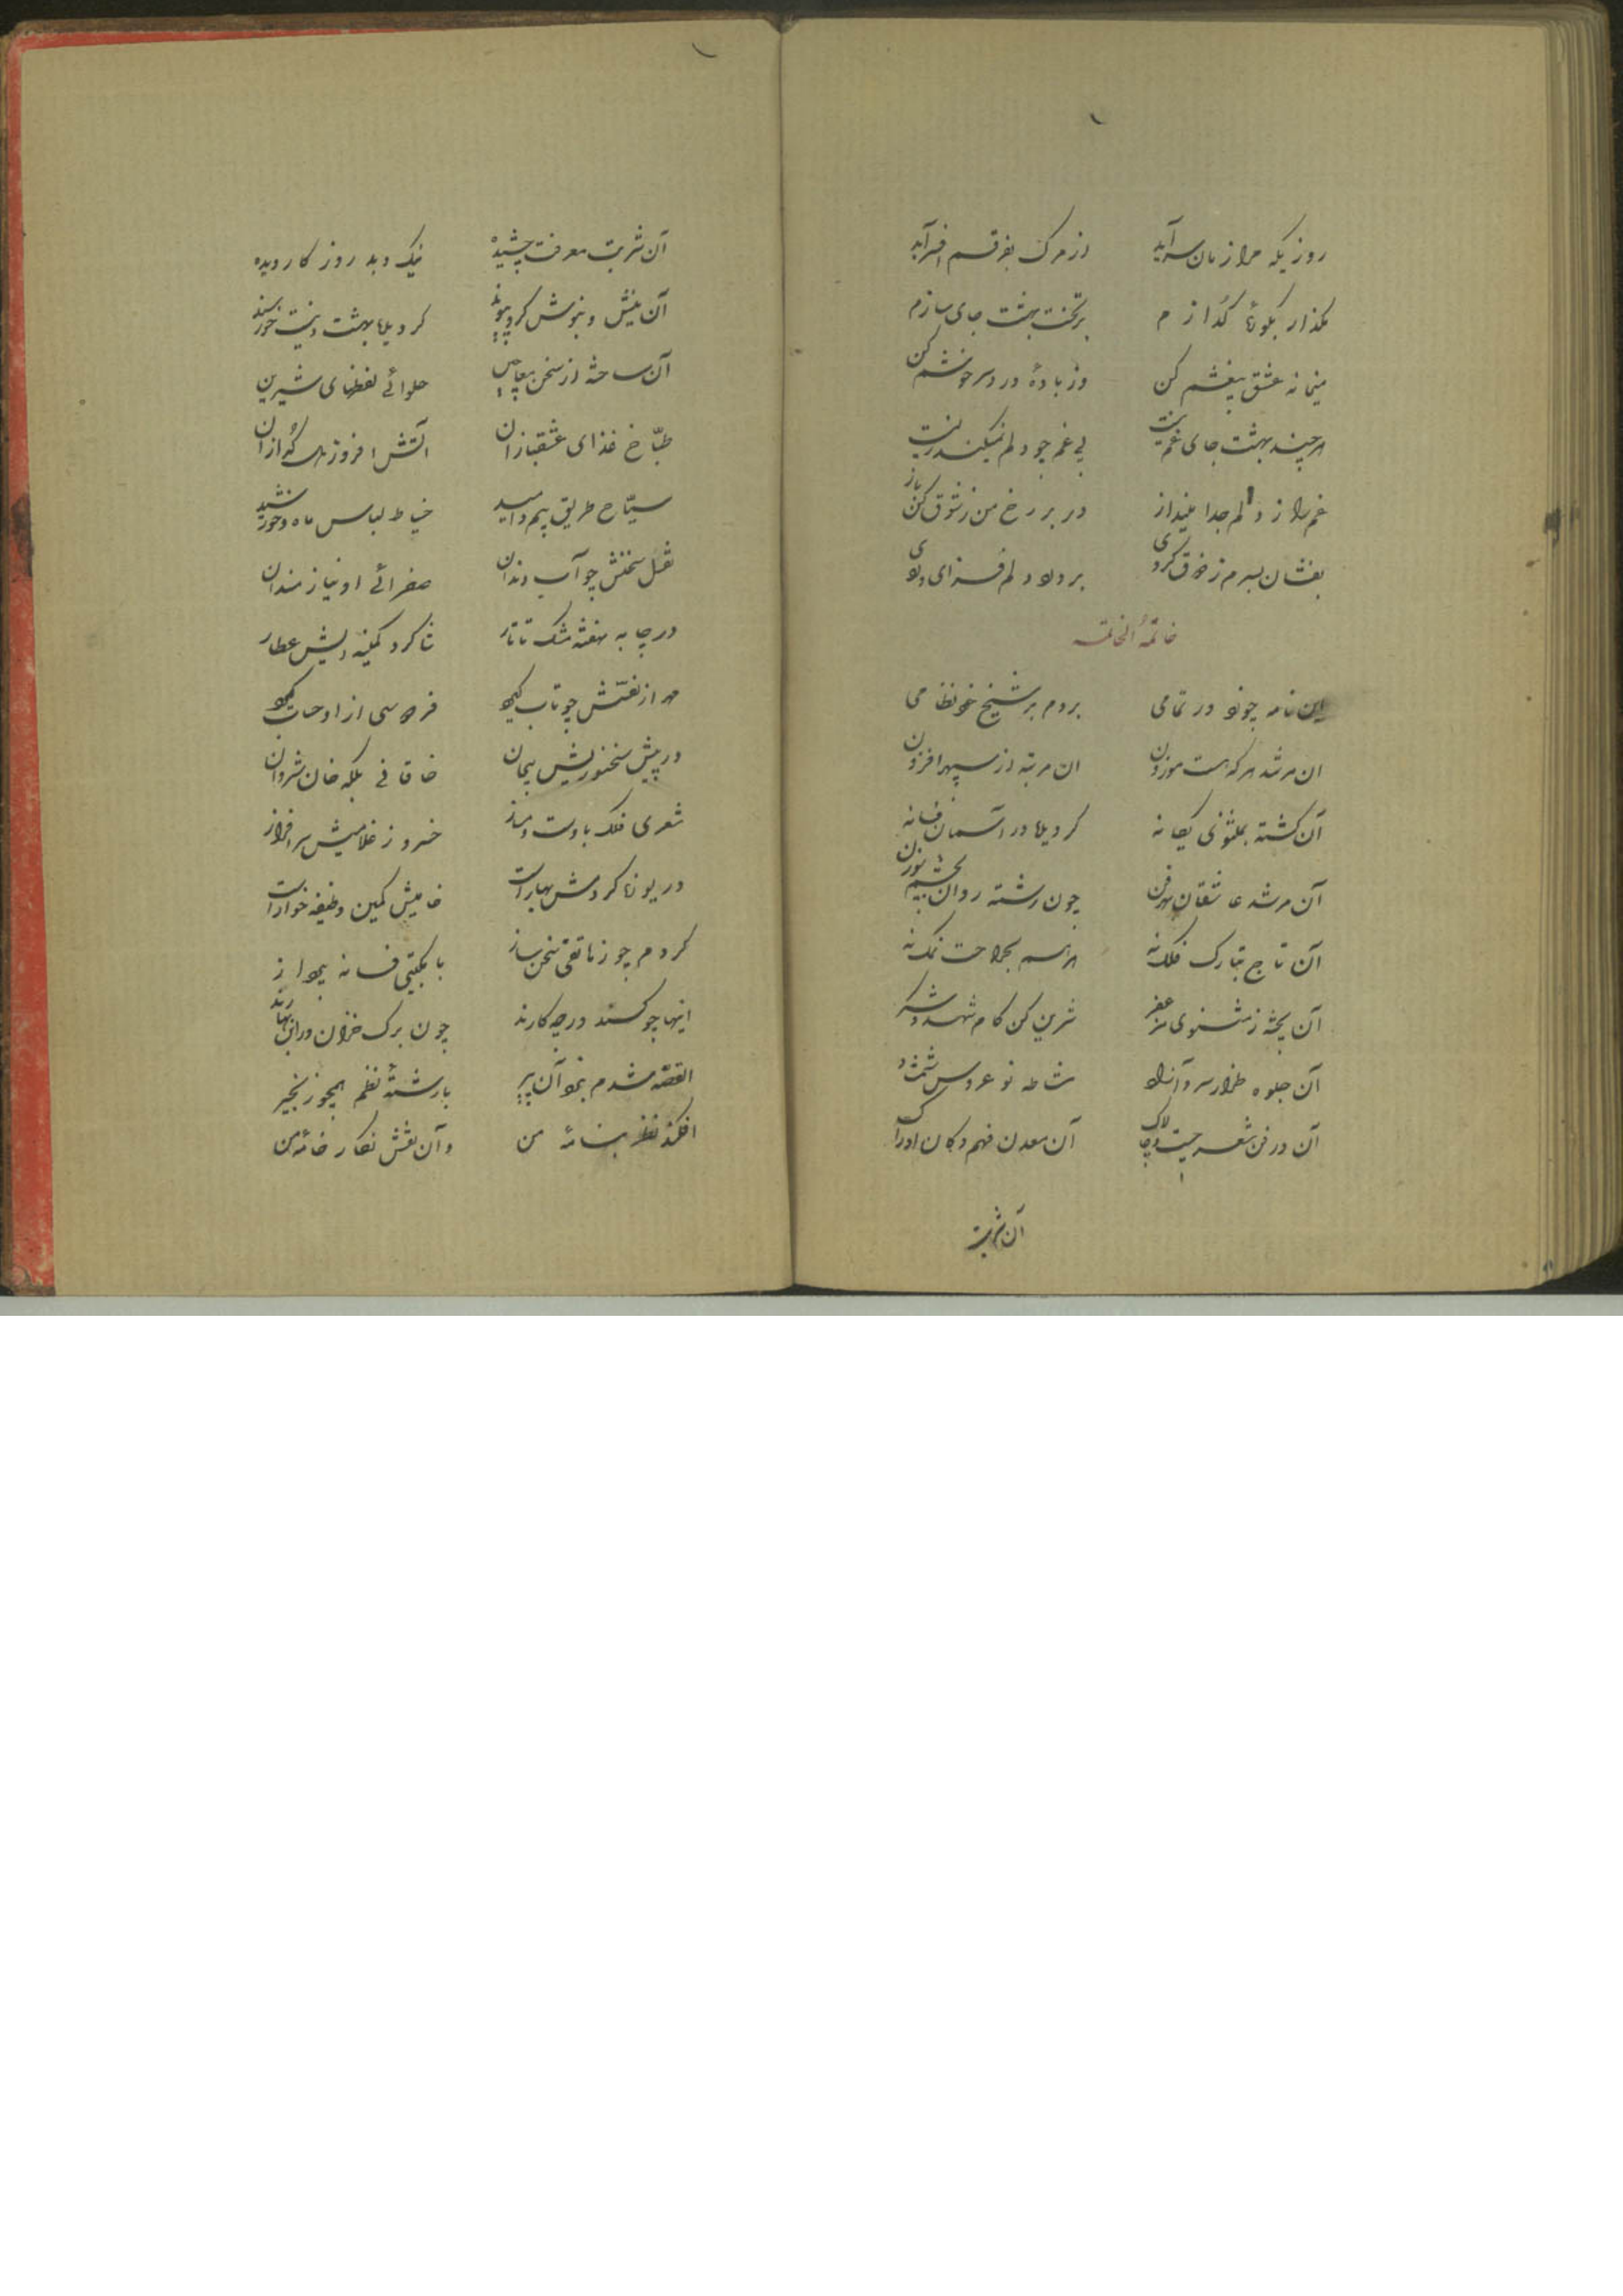 روزیکه مرا زمان سر آید از مرک بفرقم افسر آید
مکذار بکونها کدازم بر تخت بهشت جای سازم
میخانه عشق بیغشم کن وز بادهٔ درد سرخوشم کن
هر چند بهشت جای غم نیست بی غم چو دلم نمیکند زیست
غم را ز دلم جدا مینداز در بر رخ من ز شوق کن باز
بفشان بسرم ز خرق کردی بر درد دلم فزای دردی
خاتمهٔ الخاتمه
این نامه چو شد در تمامی بردم بر شیخ خود نظامی
ان مرشد هر که هست موزون ان مرتبه از سپهر افزون
آن کشته بمثنوی یکانه کردیده در آسمان فسانه
آن مرشد عاشقان هر فن چون رشته روان بچشم سوزن
آن تاج بتارک فلک نه مرهم بجراحت نمک نه
آن پخته ز مثنوی مزعفر شیرین کن کام شهد و شکر
آن جلوه طراز سرو آزاد مشاطه نو عروس شمشاد
آن در فن شعر چست و چالاک آن معدن فهم و کان ادراک
آن شربت
آن شربت معرفت چشیده نیک و بد روزکار دیده
آن نیش و بنوش کرده پیوند کردیده بهشت و نیست خورسند
آن ساخته از سخن حلوائے لفظهای شیرین
طبّاخ غذای عشقبازان آتش افروز کدازان
سیّاح طریق بیم و امید خیاط لباس ماه و خورشید
نقل سخنش چو آب دندان صفرائے او نیازمندان
در چابه بنفشه مشک تاتار شاکرد کمینه اش عطار
مهر از نفسش چو تاب کیرد فردوسی از او حساب کیرد
در پیش سخنوریش بیجان خاقانی بلکه خان شروان
شعری فلک با اوست دمساز خسرو ز غلامیش سرافراز
در یوزه کر دمش بهارات خامیش کمین وظیفه خوارات
کردم چو ز هاتفی سخن ساز با مکتبی فسانه پرداز
اینها چو کسند در چه کارند چون برک خزان در این بهارند
القصه شدم بنزد آن پیر با رشتهٔ نظم همچو زنجیر
افکند نظر بنامهٔ من وآن نقش نکار خامه من